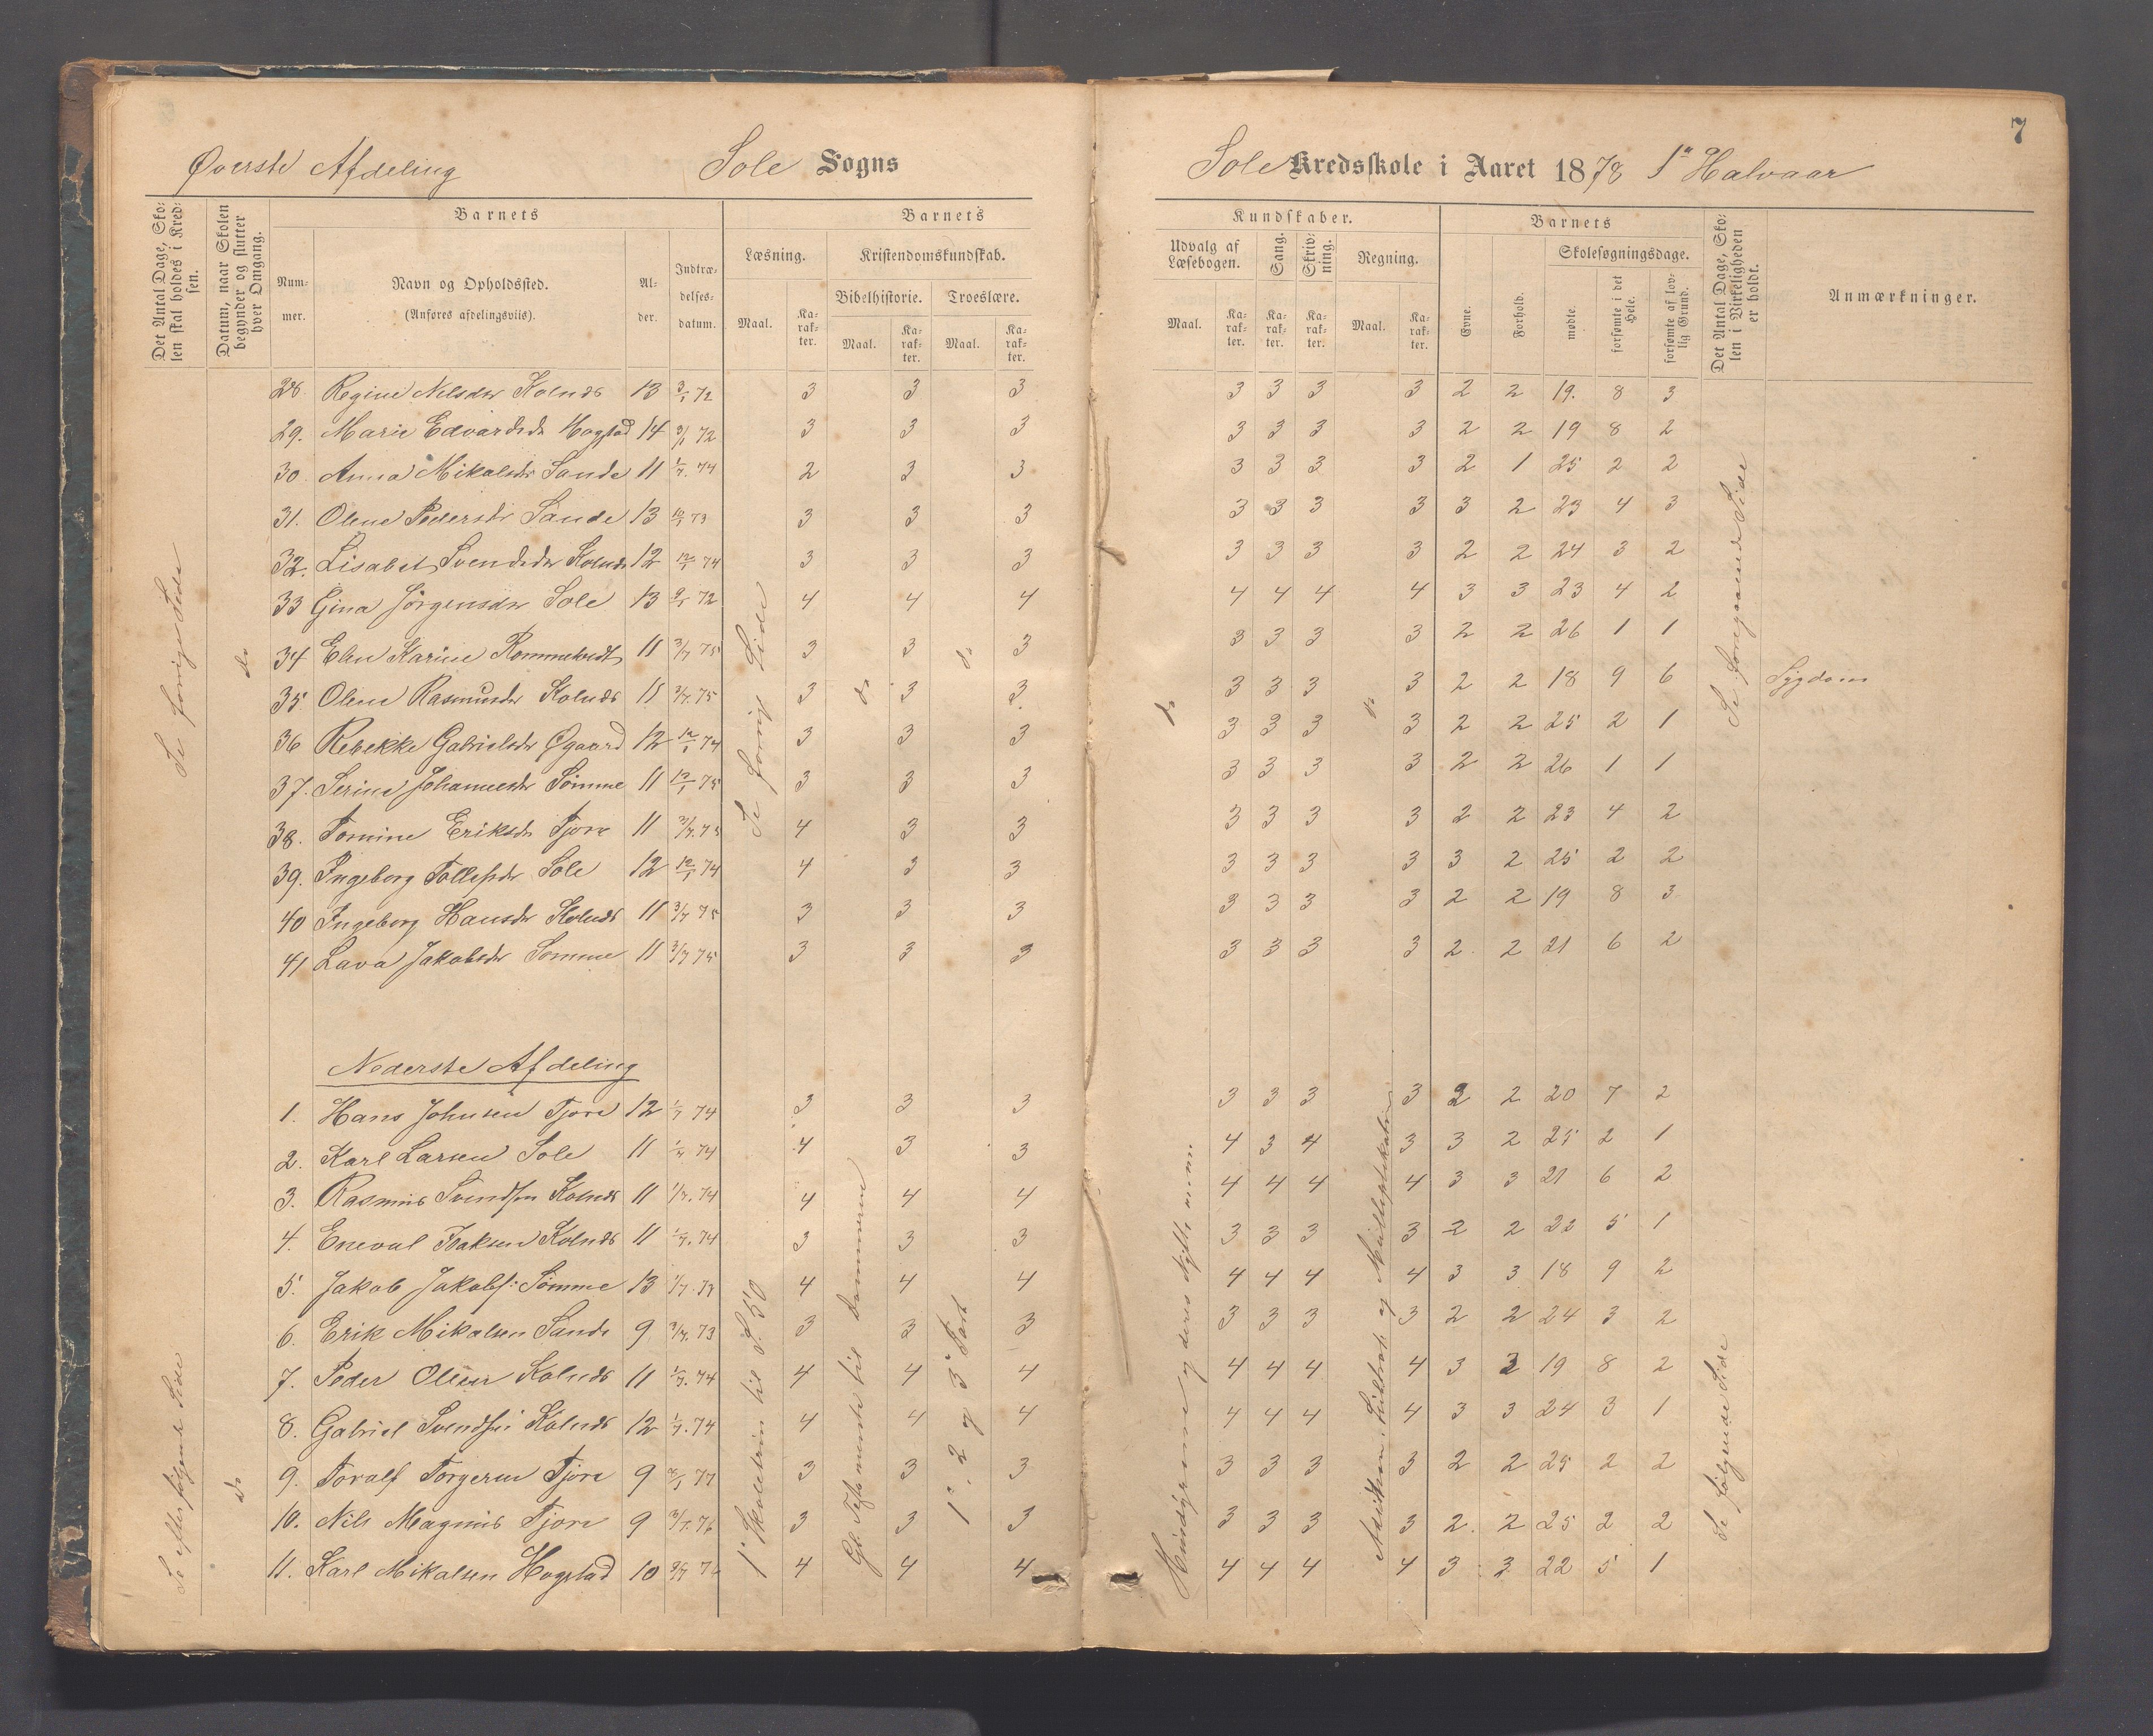 7
Øverste Afdeling Sole Sogns Sole Kredsskole i Aaret 1878 1ste Halvaar
Det Antal Dage, Skolen skal holdes i Kredsen.
Datum, naar Skolen begynder og slutter hver Omgang.
Barnets
Barnets
Kundskaber.
Barnets
Nummer.
Navn og Opholdssted.
(Anføres afdelingsviis).
Alder.
Indtrædelsesdatum.
Læsning.
Kristendomskundskab.
Udvalg af Læsebogen.
Sang.
Skrivning.
Regning.
Evne.
Forhold.
Skolesøgningsdage.
Det Antal Dage, Skolen i Virkeligheden er holdt.
Anmærkninger.
Bibelhistorie.
Troeslære.
Maal.
Karakter.
Maal.
Karakter.
Maal.
Karakter.
Maal.
Karakter.
Karakter.
Karakter.
Maal.
Karakter.
mødte.
forsømte i det Hele.
forsømte af lovlig Grund.
Se forrige Side
do
Se forrige Side
do
do
do
do
Se foregaaende Side
28. Regine Nilsdtr Kolnes 13 3/1 72 3 3 3 3 3 3 3 2 2 19. 8 3
29. Marie Edvardsdtr Hogstad 14 3/1 72 3 3 3 3 3 3 3 2 2 19 8 2
30 Anna Mikalsdtr Sande 11 1/7. 74 2 3 3 3 3 3 3 2 1 25 2 2
31. Olene Pedersdtr Sande 13 73 3 3 3 3 3 3 3 3 2 23 4 3
32. Lisabet Svendsdtr Kolnes 12 12/1 74 3 3 3 3 3 3 3 2 2 24 3 2
33 Gina Jørgensdtr Sole 13 72 4 4 4 4 4 4 4 3 3 23 4 2
34 Elen Karine Rommetvedt 11 3/7 75 3 3 3 3 3 3 3 2 2 26 1 1
35 Olene Rasmusdtr Kolnes 11 3/7. 75 3 3 3 3 3 3 3 2 2 18 9 6 Sygdom
36 Rebekke Gabrielsdtr Øgaard 12 12/1 74 3 3 3 3 3 3 3 2 2 25 2 1
37. Serine Johannesdtr Sømme 11 12/1 75 3 3 3 3 3 3 3 2 2 26 1 1
38. Tomine Eriksdtr Tjora 11 3/7. 75 4 3 3 3 3 3 3 2 2 23 4 2
39. Ingeborg Tollefsdtr Sole 12 12/1 74 4 3 3 3 3 3 3 3 2 25 2 2
40 Ingeborg Hansdtr Kolnes 11 3/7 75 3 3 3 3 3 3 3 2 2 19 8 3
41 Lava Jakobsdtr Sømme 11 3/7 75 3 3 3 3 3 3 3 2. 2 21 6 2
Nederste Afdeling
Se efterfølgende Side
do
1ste Skoletrin til S. 50
1ste, 2 og 3die Part
Se følgende Side
1. Hans Johnsen Tjora 12 1/7 74 3 3 3 3 3 3 3 2 2 20 7 2
2. Karl Larsen Sole 11 1/7 74 4 3 3 4 3 4 3 3 2 25 2 1
3. Rasmus Svendsen Kolnes 11 1/7. 74 4 4 4 4 4 4 4 3 3 21 6 2
4. Eneval Isaksen Kolnes 11 1/7. 74 3 3 3 3 3 3 3 2 2 22 5 1
5. Jakob Jakobs: Sømme 13 1/7. 73 4 4 4 4 4 4 4 3 3 18 9 2
6. Erik Mikalsen Sande 9 3/7. 73 3 3 3 3 3 3 3 2 2 24 3 2
7. Peder Olsen Kolnes 11 1/7. 74 4 4 4 4 4 4 4 3 3 19 8 2
8. Gabriel Svendsen Kolnes 12 1/7. 74 4 4 4 4 4 4 4 3 3 24 3 1
9. Toralf Torgersen Tjora 9 77 3 3 3 3 3 3 3 2 2 25 2 2
10. Nils Magnus Tjora 9 3/7. 76 3 3 3 3 3 3 3 2. 2 25 2 2
11. Karl Mikalsen Hogstad 10 4 4 4 4 4 4 4 3 3 22 5 1